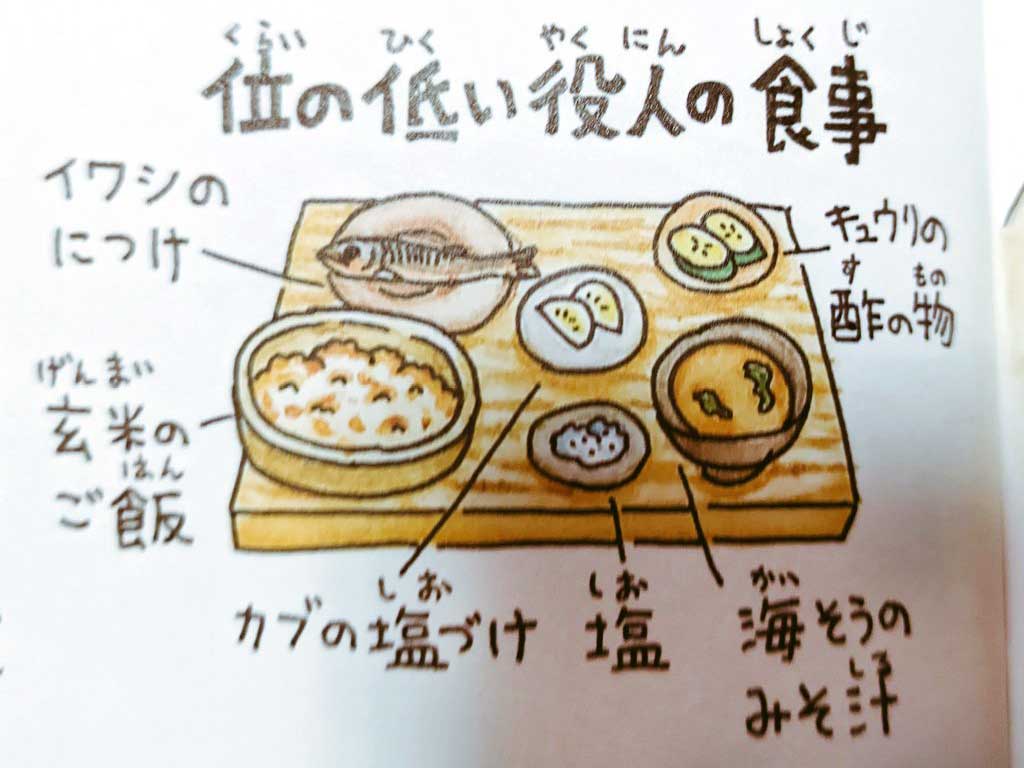 くらい ひく やくにん しょくじ
位の低い役人の食事
イワシの
につけ
キュウリの
す もの
酢の物
げんまい
玄米の
はん
ご飯
しお
カブの塩づけ
しお
塩
かい
海そうの
しる
みそ汁